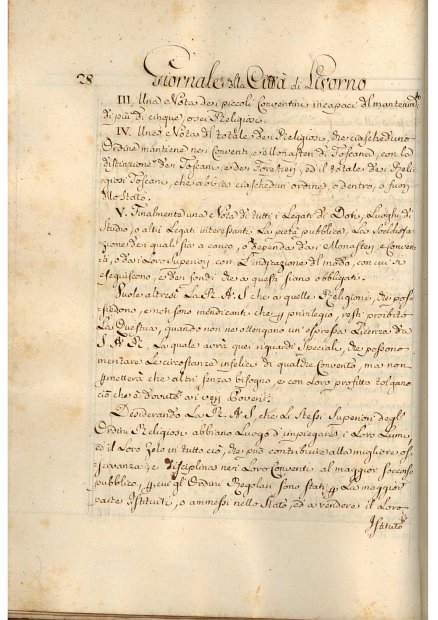 28 Giornale della Città di Livorno
III. Una Nota dei piccoli Conventini incapaci del mantenim.to
di più di cinque, o sei Religiosi.
IV. Una Nota di totale dei Religiosi, che ciascheduno
Ordine mantiene nei Conventi, e Monasteri di Toscana, con la
distinzione dei Toscani, e dei Forestieri, ed il totale dei Reli-
giosi Toscani, che abbia ciaschedun ordine, o dentro, o fuori
dello Stato.
V. Finalmente una Nota di tutti i Legati di Doti, Luoghi di
Studio, o altri Legati interessanti La pietà pubblica, La Sodisfa-
zione dei quali sia a carico, o dependa dai Monasteri, e Conven-
ti, o dai Loro Superiori, con L'indicazione del modo, con cui si
eseguiscono, e dei fondi che a questi siano obbligati.
Vuole altresì La R. A. S. che a quelle Religioni, che pos-
siedono, e non sono mendicanti che p privilegio, resti proibito
La Questua, quando non ne ottengano un'espressa Licenza da
S. A. R. La quale avrà quei riguardi speciali, che possono
meritare Le circostanze infelici di qualche Convento, ma non
pmetterà che altri senza bisogno, e con Loro profitto tolgano
ciò che è dovuto ai veri Poveri.
Desiderando La R. A. S. che Li Stessi Superiori degl'
Ordini Religiosi abbiano Luogo d'impiegare i Loro Lumi,
ed il Loro Zelo in tutto ciò, che può contribuire alla migliore os-
servanza, e disciplina nei Loro Conventi al maggior soccorso
pubblico, p cui gl'Ordini Regolari sono stati p La maggior
parte Istituiti, o ammessi nello Stato, ed a rendere il Loro
Istituto